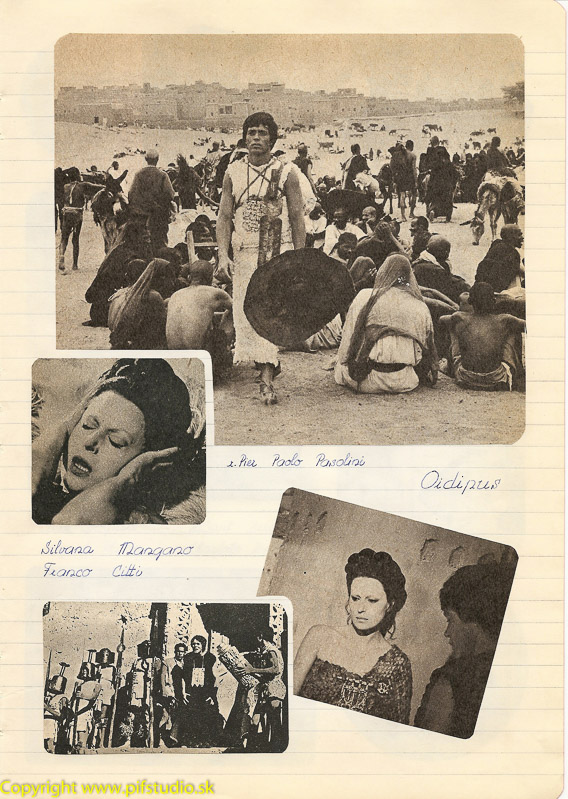 r. Pier Paolo Pasolini
Oidipus
Silvana Mangano
Franco Citti
Copyright www.pifstudio.sk